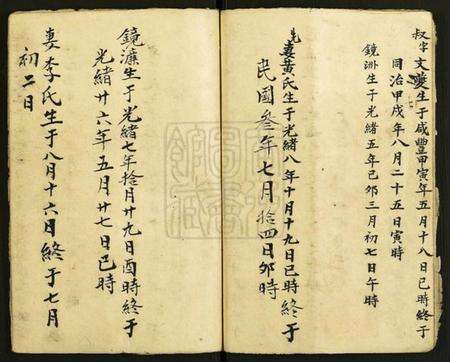 叔字文夔生于咸豐甲寅年五月十八日巳時終于
同治甲戌年八月二十五日寅時
鏡洲生于光緒五年己卯三月初七日午時
妻黄氏生于光緒八年十月十九日巳時終于
民國叁年七月拾四日卯時
鏡濂生于光緒七年拾月廿九日酉時終于
光緒廿六年五月廿七日巳時
妻李氏生于八月十六日終于七月
初二日